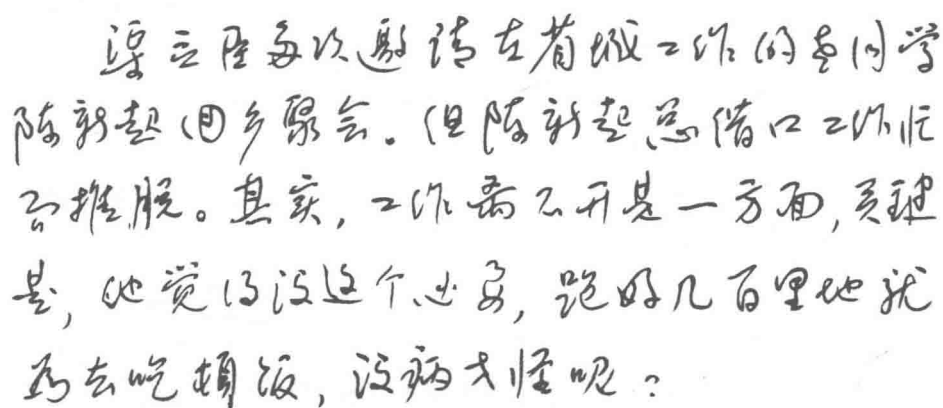 梁立臣每次邀请在省城工作的老同学
陈新起回乡聚会。但陈新起总借口工作忙
而推脱。其实,工作离不开是一方面,关键
是,他觉得没这个必要,跑好几百里地就
为去吃顿饭,没病才怪呢?